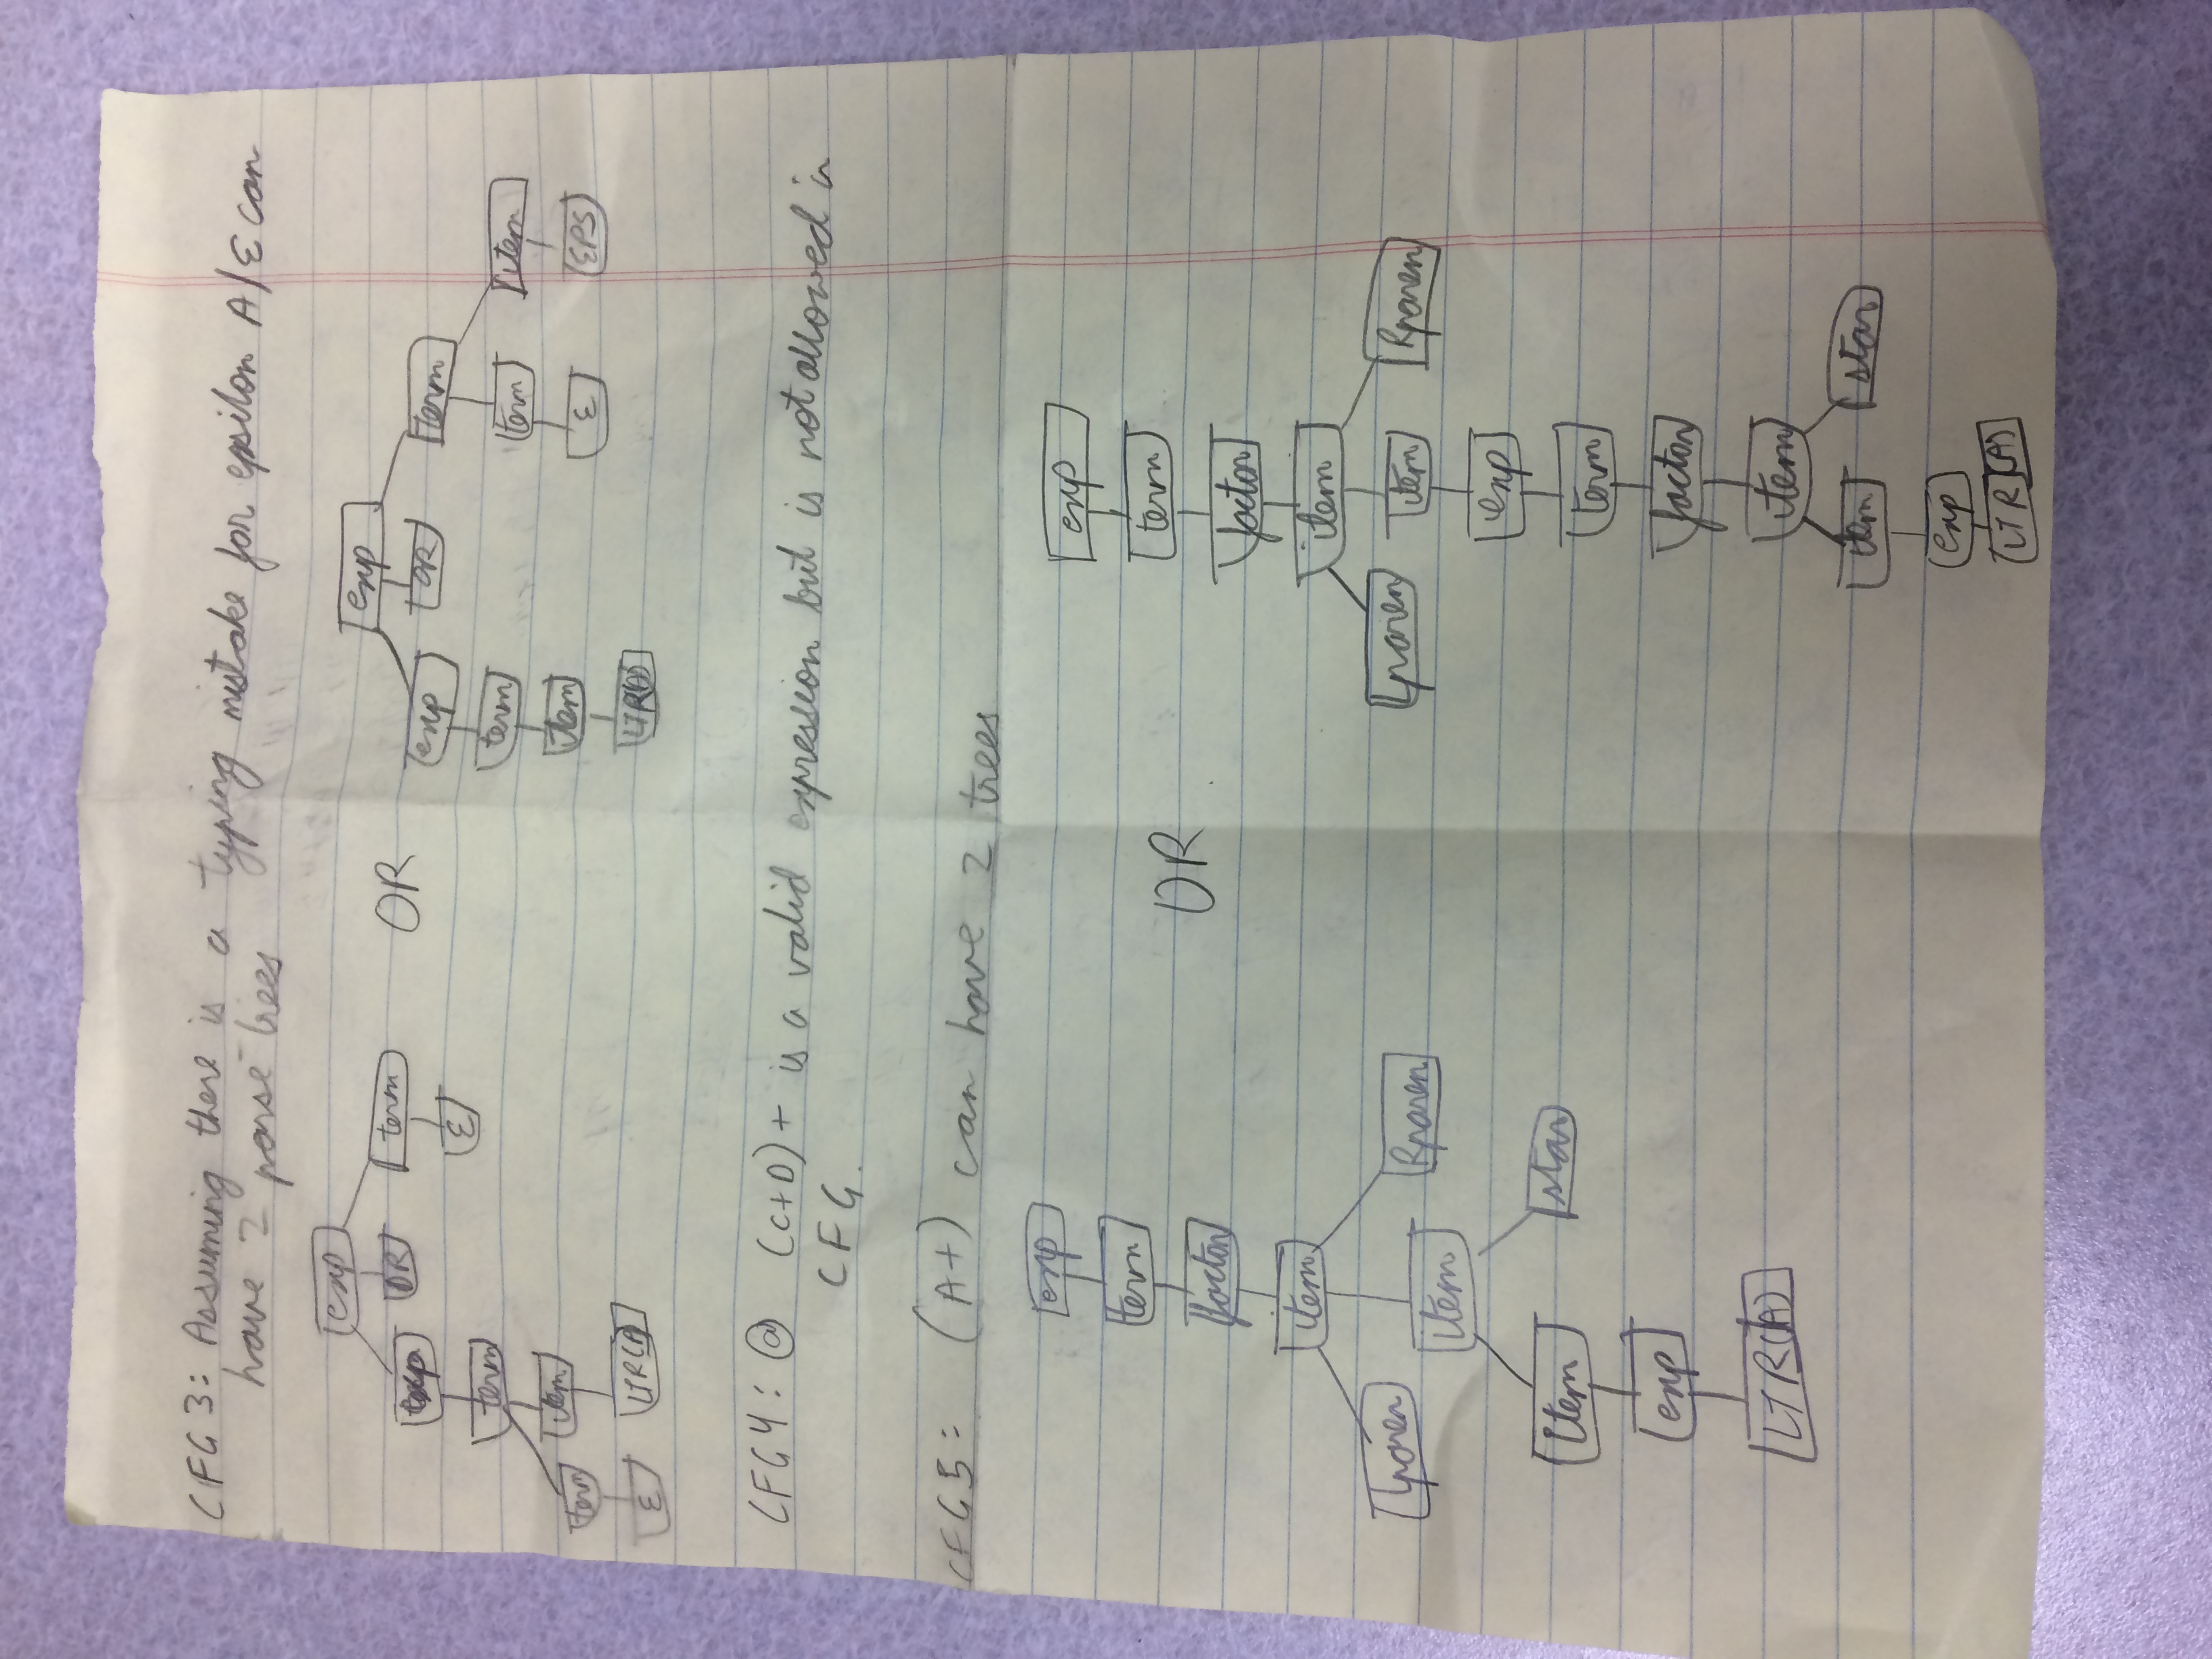 CFG 3: Assuming there is a typing mistake for epsilon A/ε can
have 2 parse trees
exp
OR
term
ε
term
term
item
ε
LTR(A)
OR
exp
exp
OR
term
term
term
item
item
ε
EPS
LTR(A)
CFG4: @ (C+D)+ is a valid expression but is not allowed in
CFG.
CFG5: (A+) can have 2 trees
exp
term
factor
item
Lparen
item
Rparen
item
star
exp
LTR(A)
OR
exp
term
factor
item
Lparen
item
Rparen
exp
term
factor
item
item
star
exp
LTR(A)